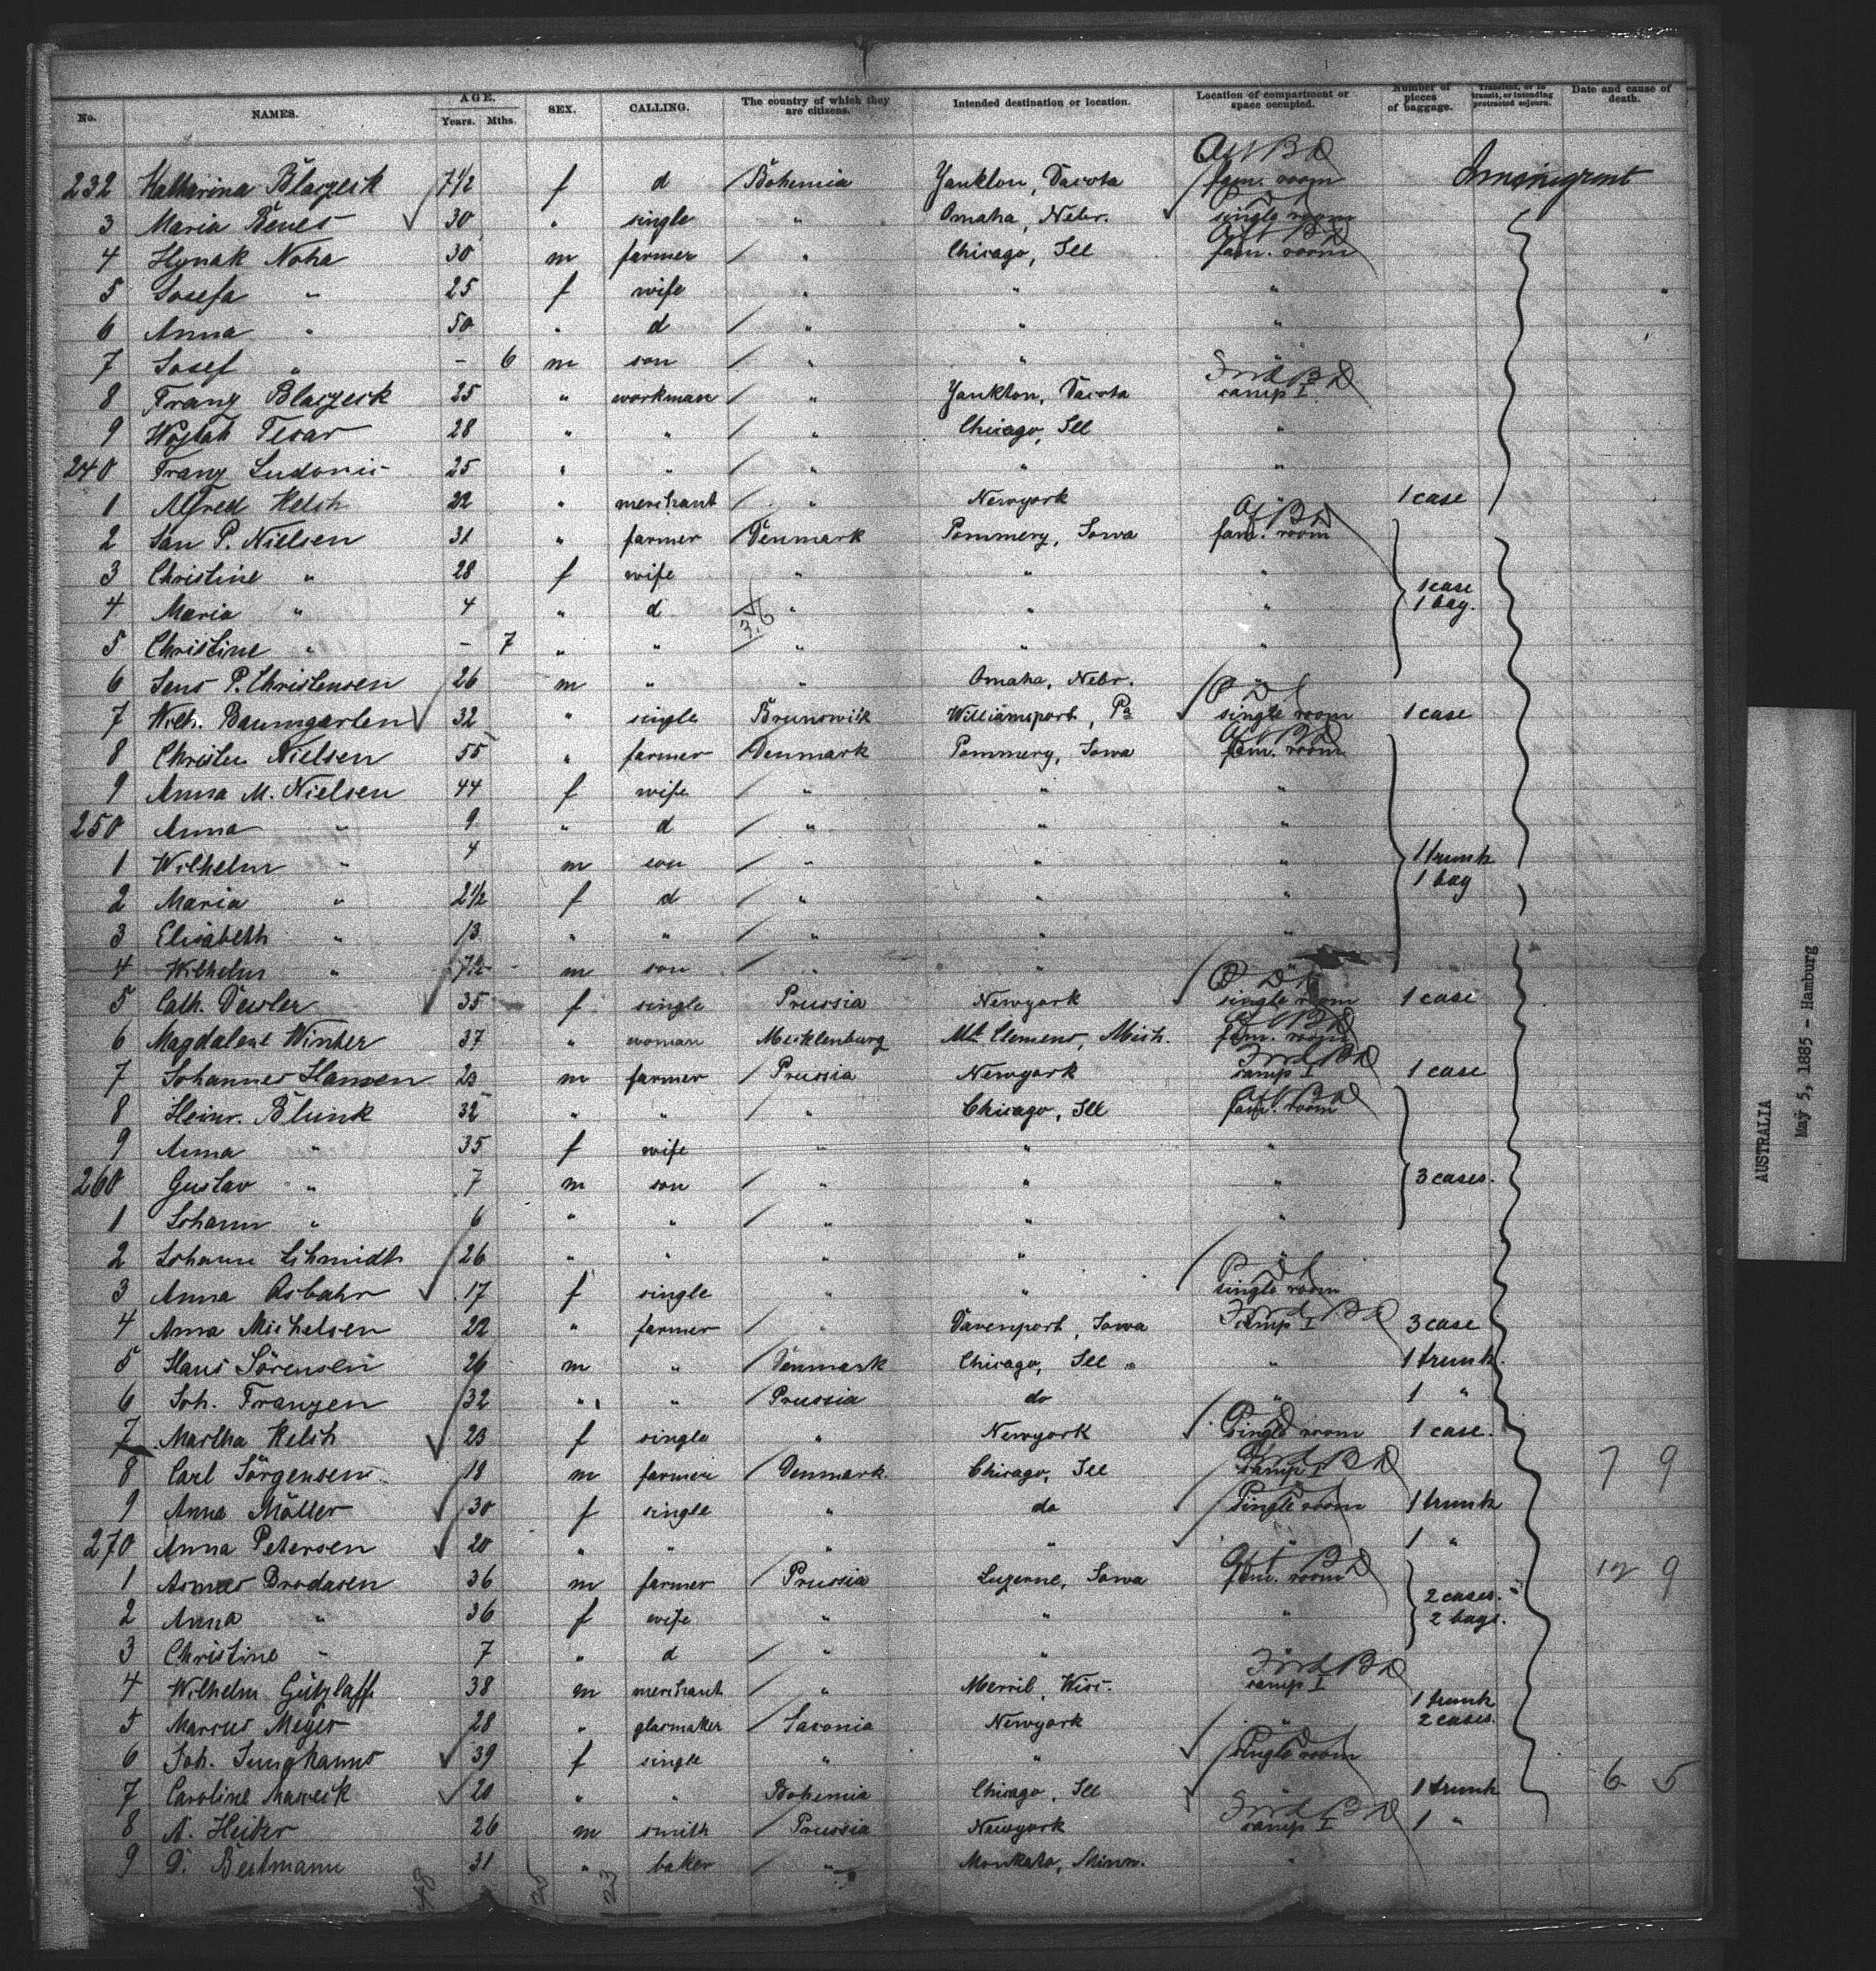 No. NAMES. AGE. Years. Mths. SEX. CALLING. The country of which they are citizens. Intended destination or location. Location of compartment or space occupied. Number of pieces of baggage. Transient, or in transit, or intending protracted sojourn. Date and cause of death.
Aft BD
232 Katharina Blaczeck 7 1/2 f d Bohemia Yankton, Dacota fam. room Immigrant
3 Maria Benes 30 " single " Omaha, Nebr. single room
4 Hynak Noha 30 m farmer " Chicago, Ill fam. room
5 Josefa " 25 f wife " " "
6 Anna " 50 " d " " "
7 Josef " - 6 m son " "
8 Franz Blaczeck 25 " workman " Yankton, Dacota camp I
9 Wojtah Tesar 28 " " " Chicago, Ill "
240 Franz Ludovic 25 " " " " "
1 Alfred Kelch 22 " merchant " Newyork " 1 case
2 Jan P. Nielsen 31 " farmer Denmark Pommery, Iowa fam. room
3 Christine " 28 f wife " " "
4 Maria " 4 " d " " " 1 case 1 bag.
5 Christine " - 7 " " " " "
6 Jens P. Christensen 26 m " " Omaha, Nebr. "
7 Wilh. Baumgarten 32 " single Brunswick Williamsport, Pa single room 1 case
8 Christen Nielsen 55 " farmer Denmark Pommery, Iowa fam. room
9 Anna M. Nielsen 44 f wife " " "
250 Anna " 9 " d " " "
1 Wilhelm " 4 m son " " " 1 trunk
2 Maria " 2 1/2 f d " " " 1 bag
3 Elisabeth " 13 " " " " "
4 Wilhelm " 7 1/2 m son " "
5 Cath. 35 f single Prussia Newyork single room 1 case
6 Magdalene Winter 37 " woman Mecklenburg Mt. Clemens, Mich. fam. room
7 Johannes Hansen 23 m farmer Prussia Newyork camp I 1 case
8 Heinr. Blunk 32 " " " Chicago, Ill fam. room
9 Anna " 35 f wife " " "
260 Gustav " 7 m son " " " 3 cases.
1 Johann " 6 " " " " "
2 Johann Schmidt 26 " " " "
3 Anna Asbahr 17 f single " " single room
4 Anna Michelsen 22 " farmer " Davenport, Iowa camp I 3 case
5 Hans Sörensen 26 m " Denmark Chicago, Ill " 1 trunk.
6 Joh. Franzen 32 " " Prussia do " 1 "
7 Martha Kelch 23 f single " Newyork single room 1 case.
8 Carl Jörgensen 18 m farmer Denmark. Chicago, Ill camp I 7 9
9 Anna Möller 30 f single " do single room 1 trunk
270 Anna Petersen 20 " " " " " 1 "
1 Asmus Brodasen 36 m farmer Prussia Luzerne, Iowa fam. room 12 9
2 Anna " 36 f wife " " " 2 cases. 2 bags.
3 Christine " 7 " d " " "
4 Wilhelm Gützlaff 38 m merchant " Merril, Wisc. camp I
5 Marcus Meyer 28 " glasmaker Saxonia Newyork " 1 trunk 2 cases.
6 Joh. Junghanns 39 f single " " single room
7 Caroline 20 " " Bohemia Chicago, Ill " 1 trunk 6 5
8 A. Heider 26 m smith Prussia Newyork camp I 1 "
9 D. Bestmann 31 " baker " Monkato, Minn. "
AUSTRALIA
May 5, 1885 - Hamburg